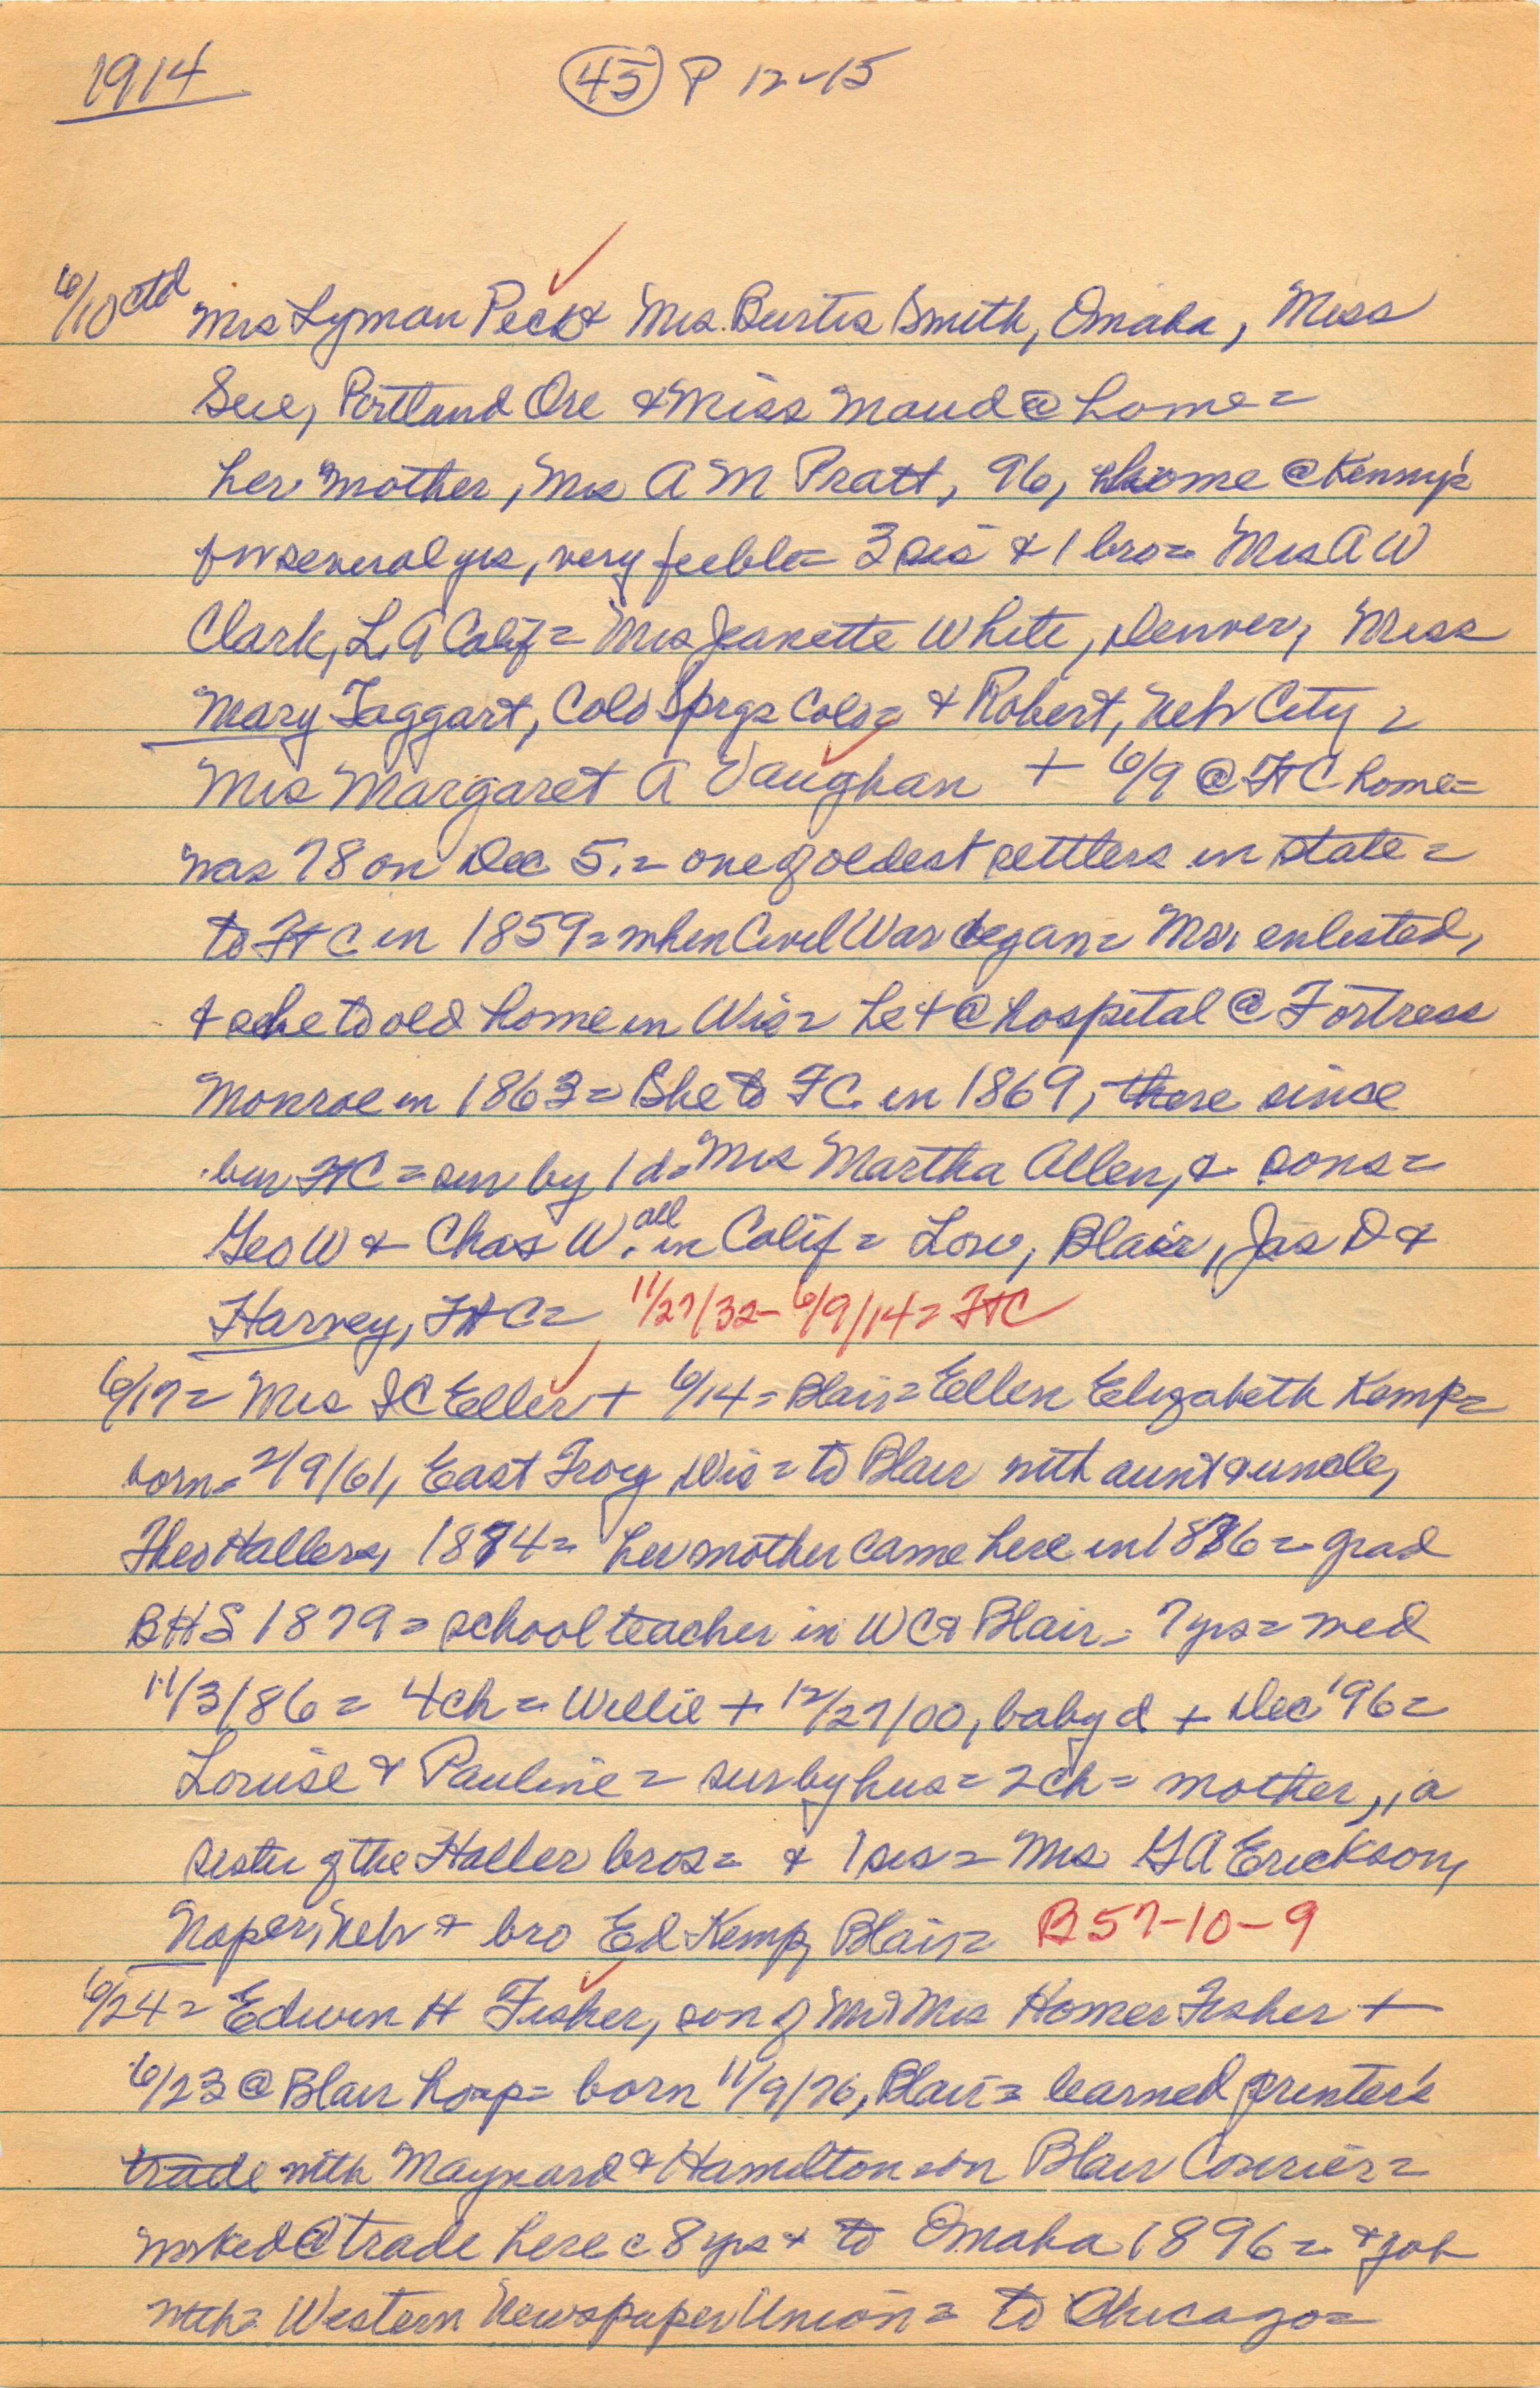 1914 (45) P 12-15
6/10 ctd Mrs Lyman Peck & Mrs. Burtis Smith, Omaha, Miss
Sue, Portland Ore & Miss Maud @ home =
her mother, Mrs A M Pratt, 96, home @ Kenny's
for several yrs, very feeble = 3 sis & 1 bro = Mrs A W
Clark, L.A Calif = Mrs Jeanette White, Denver, Miss
Mary Taggart, Colo Sprgs Colo = & Robert, Neb City =
Mrs Margaret A Vaughan + 6/9 @ FtC home =
was 78 on Dec 5. = one of oldest settlers in state =
to FtC in 1859 = when Civil War began = Mr enlisted,
& she to old home in Wis = he + @ hospital @ Fortress
Monroe in 1863 = She to FC in 1869, there since
bur FtC = sur by 1 d = Mrs Martha Allen, & sons =
Geo W & Chas W. all in Calif = Low, Blair, Jas D &
Harvey, FtC = 11/27/32 - 6/9/14 = FtC
6/17 = Mrs I C Eller + 6/14 = Blair = Ellen Elizabeth Kemp =
born = 2/9/61, East Troy Wis = to Blair with aunt & uncle,
Theo Hallers, 1874 = her mother came here in 1876 = grad
BHS 1879 = school teacher in WC & Blair = 7 yrs = med
11/3/86 = 4 ch = Willie + 12/27/00, baby d + Dec '96 =
Louise & Pauline = sur by hus = 2 ch = mother, a
sister of the Haller bros = & 1 sis = Mrs G A Erickson,
Naper, Neb & bro Ed Kemp, Blair = B 57-10-9
6/24 = Edwin H Fisher, son of Mr & Mrs Homer Fisher +
6/23 @ Blair hosp = born 11/9/76, Blair = learned printer's
trade with Maynard & Hamilton on Blair Courier =
worked @ trade here c 8 yrs & to Omaha 1896 = & job
with = Western Newspaper Union = to Chicago =